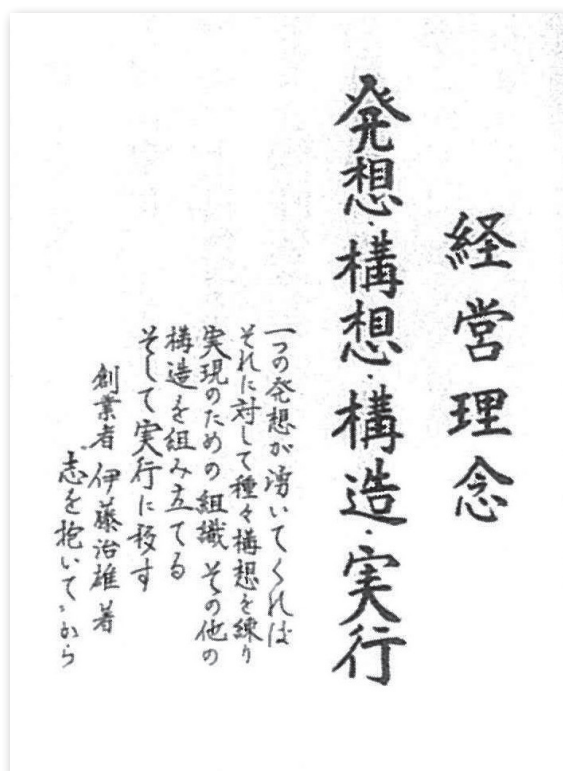 経営理念
発想・構想・構造・実行
一つの発想が湧いてくれば
それに対して種々構想を練り
実現のための組織その他の
構造を組み立てる
そして実行に移す
創業者 伊藤治雄 著
志を抱いて〟から